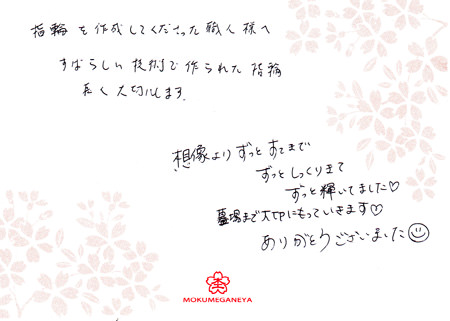 指輪を作成してくださった職人様へ
すばらしい技術で作られた指輪
長く大切にします。
想像よりずっとすてきで
ずっとしっくりきて
ずっと輝いてました♡
墓場まで大切にもっていきます♡
ありがとうございました☺
MOKUMEGANEYA